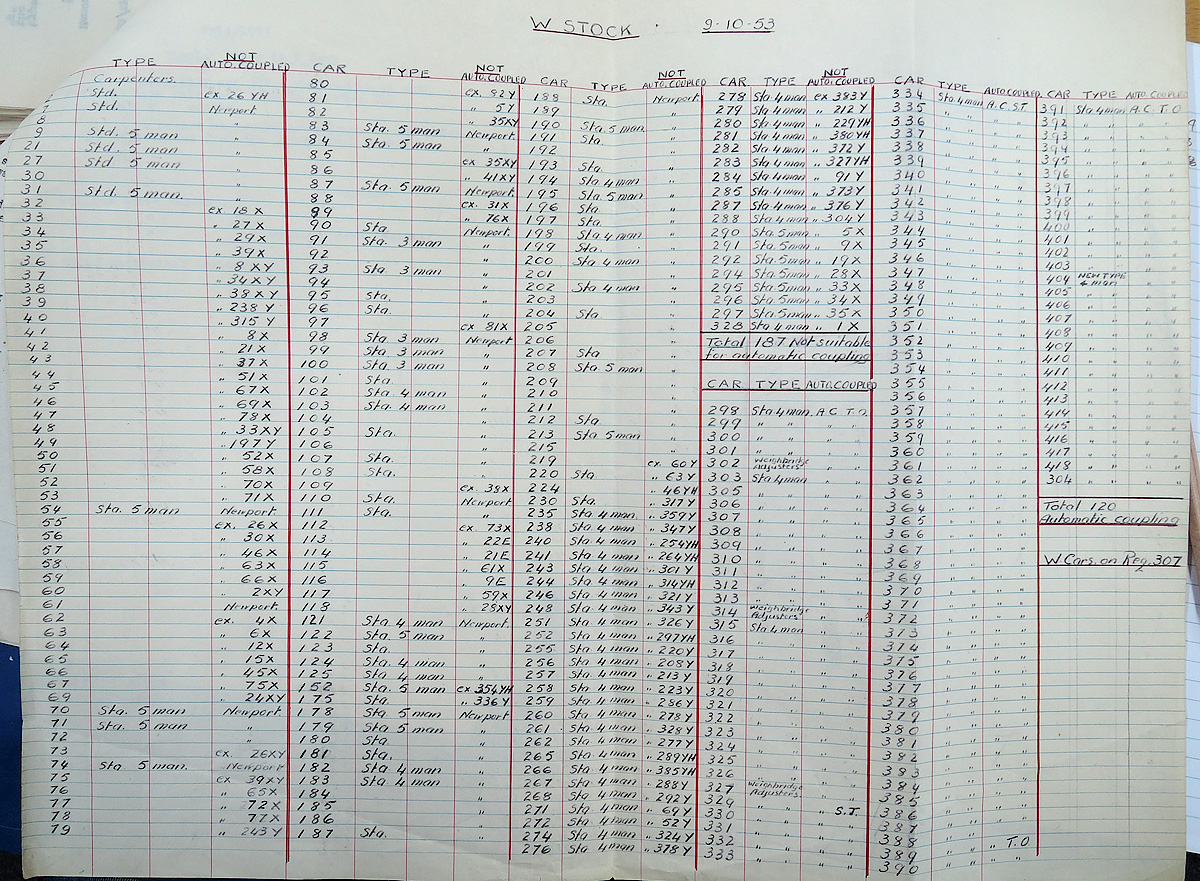 W STOCK 9-10-53
TYPE NOT AUTO.COUPLED
Carpenters.
Std. ex. 26 YH
7 Std. Newport
8 "
9 Std. 5 man "
21 Std. 5 man "
27 Std 5 man "
30 "
31 Std. 5 man. "
32
33 ex 18 X
34 " 27 X
35 " 29 X
36 " 39 X
37 " 8 XY
38 " 34 XY
39 " 38 XY
40 " 238 Y
41 " 315 Y
42 " 8 X
43 " 21 X
44 " 37 X
45 " 51 X
46 " 67 X
47 " 69 X
48 " 78 X
49 " 33 XY
50 " 197 Y
51 " 52 X
52 " 58 X
53 " 70 X
54 Sta. 5 man Newport
55 ex. 26 X
56 " 30 X
57 " 46 X
58 " 63 X
59 " 66 X
60 " 2 XY
61 Newport.
62 ex. 4 X
63 " 6 X
64 " 12 X
65 " 15 X
66 " 45 X
67 " 75 X
69 " 24 XY
70 Sta. 5 man Newport
71 Sta. 5 man "
72 "
73 ex. 26 XY
74 Sta 5 man. Newport
75 ex 39 XY
76 " 65 X
77 " 72 X
78 " 77 X
79 " 243 Y
CAR TYPE NOT AUTO.COUPLED
80
81 ex. 82 Y
82 " 5 Y
83 Sta. 5 man " 35 XY
84 Sta. 5 man Newport
85 "
86 ex 35 XY
87 Sta. 5 man " 41 XY
88 Newport
89 ex. 31 X
90 Sta. " 76 X
91 Sta. 3 man Newport
92 "
93 Sta. 3 man "
94 "
95 Sta. "
96 Sta. "
97 ex 81 X
98 Sta. 3 man Newport
99 Sta. 3 man "
100 Sta. 3 man "
101 Sta. "
102 Sta. 4 man "
103 Sta. 4 man "
104 "
105 Sta. "
106 "
107 Sta. "
108 Sta. "
109 ex. 38 X
110 Sta. Newport
111 Sta. "
112 ex. 73 X
113 " 22 E
114 " 21 E
115 " 61 X
116 " 9 E
117 " 59 X
118 " 28 XY
121 Sta. 4 man Newport
122 Sta. 5 man "
123 Sta. "
124 Sta. 4 man "
125 Sta 4 man "
152 Sta. 5 man ex 354 YH
175 Sta. " 336 Y
178 Sta 5 man Newport
179 Sta 5 man "
180 Sta. "
181 Sta. "
182 Sta 4 man "
183 Sta 4 man "
184 "
185 "
186 "
187 Sta. "
CAR TYPE NOT AUTO.COUPLED
188 Sta. Newport
189 "
190 Sta. 5 man "
191 Sta. "
192 "
193 Sta. "
194 Sta 4 man "
195 Sta. 5 man "
196 Sta "
197 Sta "
198 Sta 4 man "
199 Sta. "
200 Sta 4 man "
201 "
202 Sta 4 man "
203 "
204 Sta "
205 "
206 "
207 Sta "
208 Sta. 5 man "
209 "
210 "
211 "
212 Sta "
213 Sta 5 man "
215 "
219 ex. 60 Y
220 Sta " 63 Y
224 " 46 YH
230 Sta. " 317 Y
235 Sta 4 man " 359 Y
238 Sta 4 man " 347 Y
240 Sta 4 man " 254 YH
241 Sta 4 man " 264 YH
243 Sta 4 man " 301 Y
244 Sta 4 man " 314 YH
246 Sta 4 man " 321 Y
248 Sta 4 man " 343 Y
251 Sta 4 man " 326 Y
252 Sta 4 man " 297 YH
255 Sta 4 man " 220 Y
256 Sta 4 man " 208 Y
257 Sta 4 man " 213 Y
258 Sta 4 man " 223 Y
259 Sta 4 man " 286 Y
260 Sta 4 man " 278 Y
261 Sta 4 man " 328 Y
262 Sta 4 man " 277 Y
265 Sta 4 man " 289 YH
266 Sta 4 man " 385 YH
267 Sta 4 man " 288 Y
268 Sta 4 man " 292 Y
271 Sta 4 man " 69 Y
272 Sta 4 man " 52 Y
274 Sta 4 man " 324 Y
276 Sta 4 man " 378 Y
CAR TYPE NOT AUTO.COUPLED
278 Sta 4 man ex 383 Y
279 Sta 4 man " 212 Y
280 Sta 4 man " 229 YH
281 Sta 4 man " 380 YH
282 Sta 4 man " 372 Y
283 Sta 4 man " 327 YH
284 Sta 4 man " 91 Y
285 Sta 4 man " 373 Y
287 Sta 4 man " 376 Y
288 Sta 4 man " 304 Y
290 Sta. 5 man " 5 X
291 Sta. 5 man " 9 X
292 Sta 5 man " 19 X
294 Sta 5 man " 28 X
295 Sta 5 man " 33 X
296 Sta 5 man " 34 X
297 Sta 5 man " 35 X
328 Sta 4 man " 1 X
Total 187 Not suitable
for automatic coupling
CAR TYPE AUTO.COUPLED
298 Sta 4 man A.C. T.O.
299 " " " "
300 " " " "
301 " " " "
302 Weighbridge Adjusters " "
303 Sta 4 man " "
305 " " " "
306 " " " "
307 " " " "
308 " " " "
309 " " " "
310 " " " "
311 " " " "
312 " " " "
313 " " " "
314 Weighbridge Adjusters " "
315 Sta 4 man " "
316 " " " "
317 " " " "
318 " " " "
319 " " " "
320 " " " "
321 " " " "
322 " " " "
323 " " " "
324 " " " "
325 " " " "
326 " " " "
327 Weighbridge Adjusters " "
329 " "
330 " " " S.T.
331 " " " "
332 " " " "
333 " " " "
CAR TYPE AUTO.COUPLED
334 Sta 4 man A.C. S.T
335 " " " "
336 " " " "
337 " " " "
338 " " " "
339 " " " "
340 " " " "
341 " " " "
342 " " " "
343 " " " "
344 " " " "
345 " " " "
346 " " " "
347 " " " "
348 " " " "
349 " " " "
350 " " " "
351 " " " "
352 " " " "
353 " " " "
354 " " " "
355 " " " "
356 " " " "
357 " " " "
358 " " " "
359 " " " "
360 " " " "
361 " " " "
362 " " " "
363 " " " "
364 " " " "
365 " " " "
366 " " " "
367 " " " "
368 " " " "
369 " " " "
370 " " " "
371 " " " "
372 " " " "
373 " " " "
374 " " " "
375 " " " "
376 " " " "
377 " " " "
378 " " " "
379 " " " "
380 " " " "
381 " " " "
382 " " " "
383 " " " "
384 " " " "
385 " " " "
386 " " " "
387 " " " "
388 " " " T.O
389 " " " "
390 " " " "
CAR TYPE AUTO COUPLED
391 Sta 4 man A.C. T.O
392 " " " "
393 " " " "
394 " " " "
395 " " " "
396 " " " "
397 " " " "
398 " " " "
399 " " " "
400 " " " "
401 " " " "
402 " " " "
403 " " " "
404 NEW TYPE 4 man " "
405 " " " "
406 " " " "
407 " " " "
408 " " " "
409 " " " "
410 " " " "
411 " " " "
412 " " " "
413 " " " "
414 " " " "
415 " " " "
416 " " " "
417 " " " "
418 " " " "
304 " " " "
Total 120
Automatic coupling
W Cars. on Reg. 307